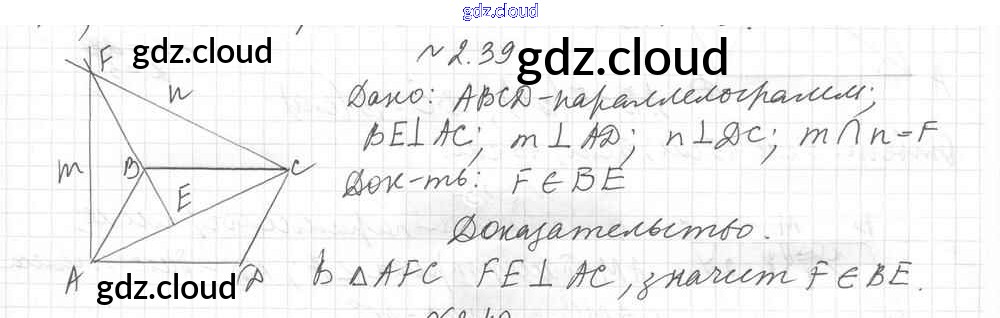 gdz.cloud
gdz.cloud
№2.39
gdz.cloud
F
n
m
B
C
E
A
D
gdz.cloud
Дано: ABCD-параллелограмм;
BE⊥AC; m⊥AD; n⊥DC; m∩n=F
Док-ть: F∈BE
Доказательство.
В △AFC FE⊥AC, значит F∈BE.